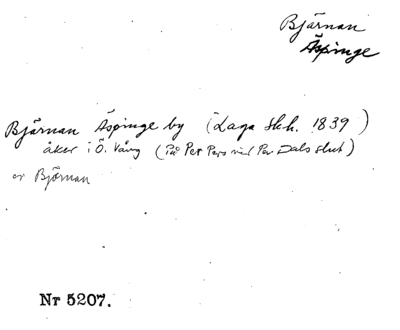 Björnan
Äspinge
Björnan Äspinge by (Laga Skh. 1839)
åker i Ö. Vång (På Per Pers vid Per Dals slut)
av Björnan
Nr 5207.